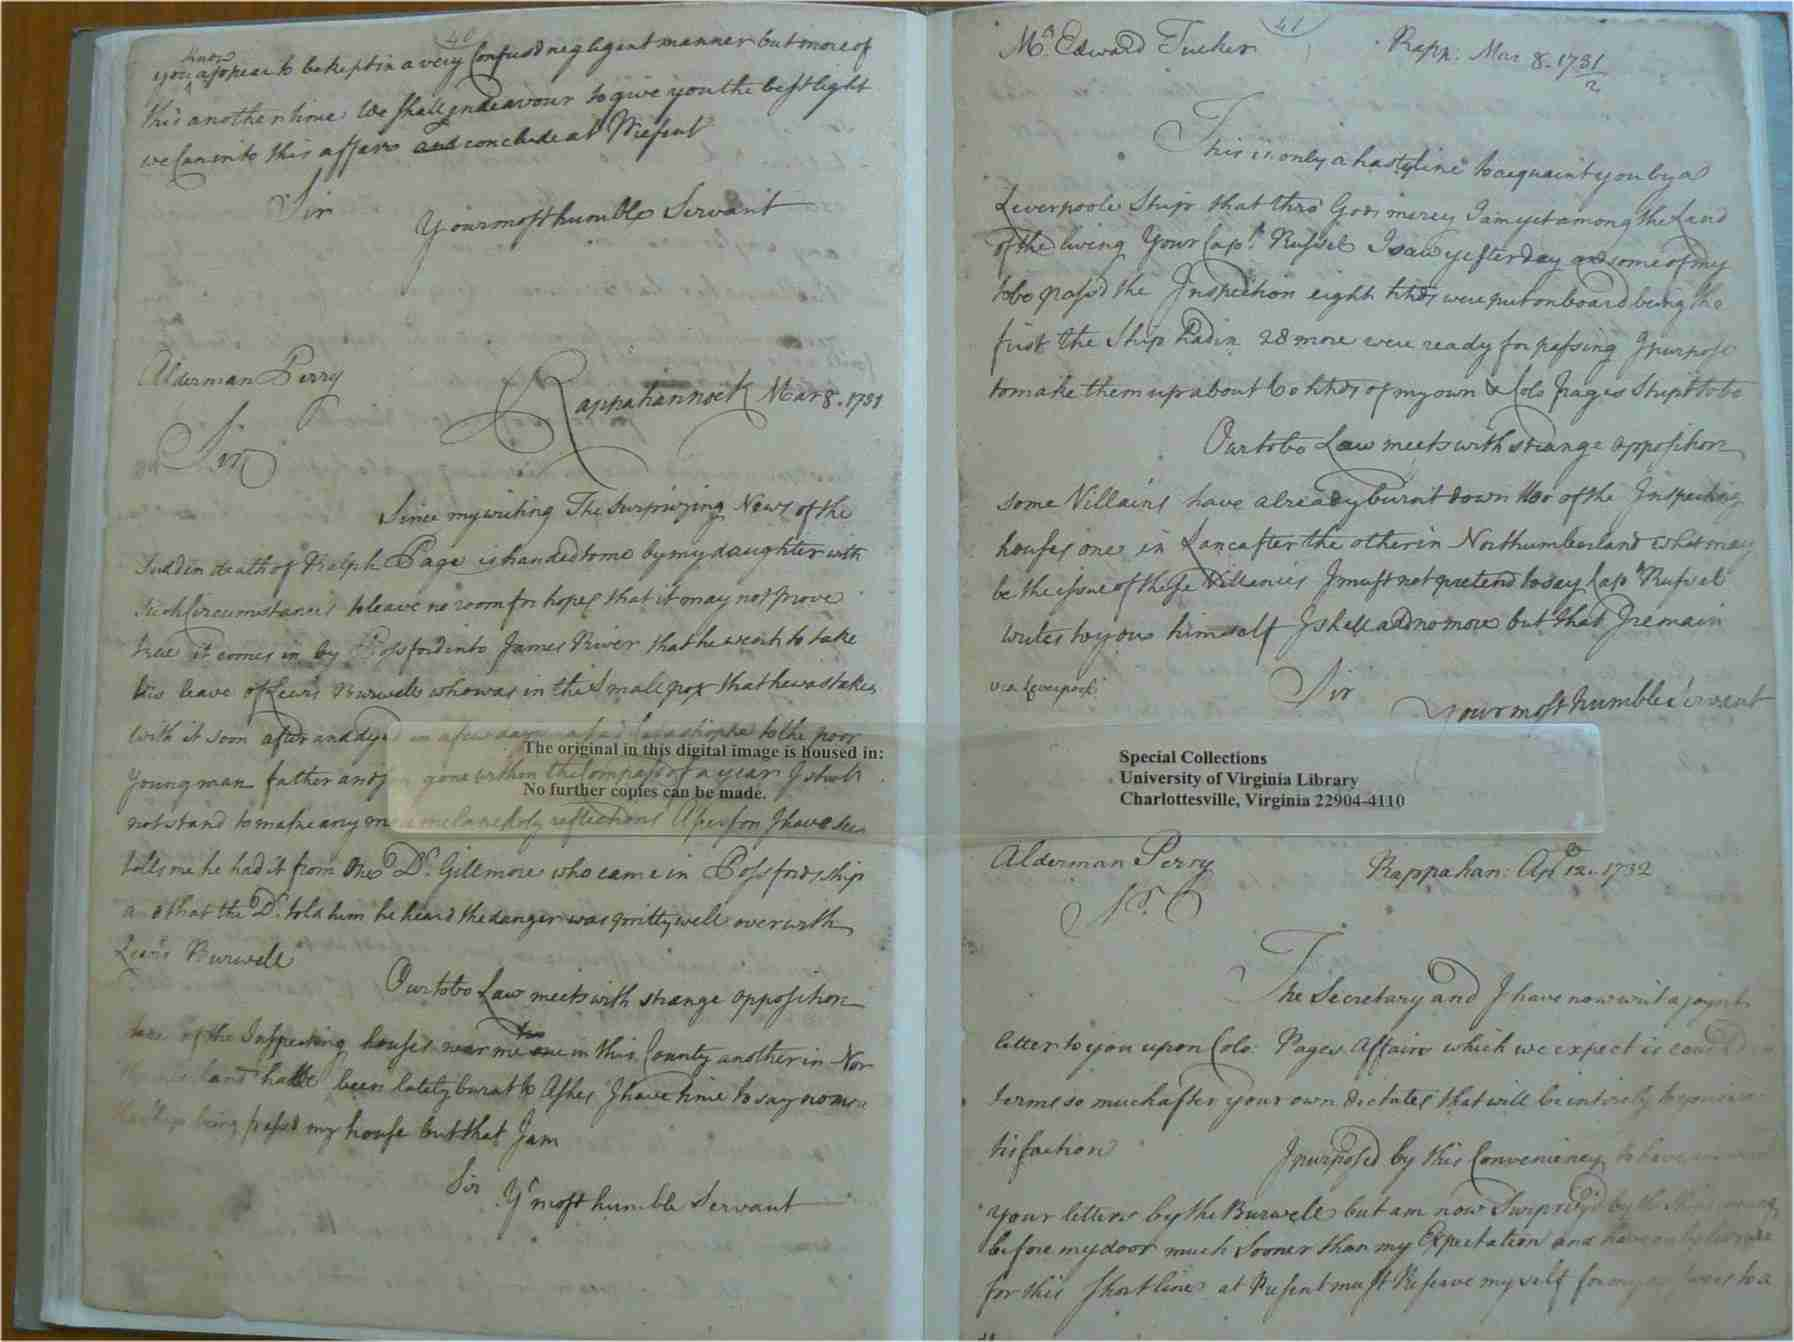 40
know
you appear to be kept in a very Confused negligent manner but more of
this another time We shall endeavour to give you the best light
we Can into this affairs and conclude at Present
Sir
Your most humble Servant
Alderman Perry
Rappahannock Mar 8. 1731
Sir
Since my writing The Surprizing News of the
Sudden death of Ralph Page is handed to me by my daughter with
such Circumstances to leave no room for hopes that it may not prove
true it comes in by Possford into James River that he went to take
his leave of Lewis Burwell who was in the Small pox that he was taken
with it soon after and dyed in a few days a sad Catastrophe to the poor
Young man father and gone within the Compass of a year I shall
not stand to make any more melancholy reflections A person I have seen
tells me he had it from one Dr. Gillmore who came in Possfords ship
and that the Dr. told him he heard the danger was pritty well over with
Lewis Burwell
Our tobo Law meets with strange opposition
two
of the Inspecting houses near me one in this County another in Nor
land have been lately burnt to Ashes I have time to say no more
being passd my house but that I am
Sir
Yr most humble Servant
41
Mr. Edward Tucker
Rapp: Mar 8. 1731
2
This is only a hasty line to acquaint you by a
Leverpoole Ship that thro' Gods mercy I am yet among the Land
of the living Your Capt. Russel I saw yesterday and some of my
tobo passd the Inspection eight hhds were put on board being the
first the Ship had in 28 more were ready for passing I purpose
to make them up about 60 hhds of my own & Colo Pages Stript tobo
Our tobo Law meets with strange opposition
some Villains have already burnt down two of the Inspecting
houses one in Lancaster the other in Northumberland what may
be the issue of these Villanies I must not pretend to say Capt Russel
writes to you himself I shall add no more but that I remain
via Leverpool
Sir
Your most humble Servant
The original in this digital image is housed in:
No further copies can be made.
Special Collections
University of Virginia Library
Charlottesville, Virginia 22904-4110
Alderman Perry
Rappahan: Apl 12. 1732
Sr.
The Secretary and I have now writ a joynt
letter to you upon Colo: Pages Affairs which we expect is
terms so much after your own dictates that will be intirely to your sa
tisfaction
I purposed by this Conveniency to have
your letters by the Burwell but am now Surprized by the Ship
before my door much sooner than my Expectation and have only time
for this Short line at Present must Reserve myself for to a